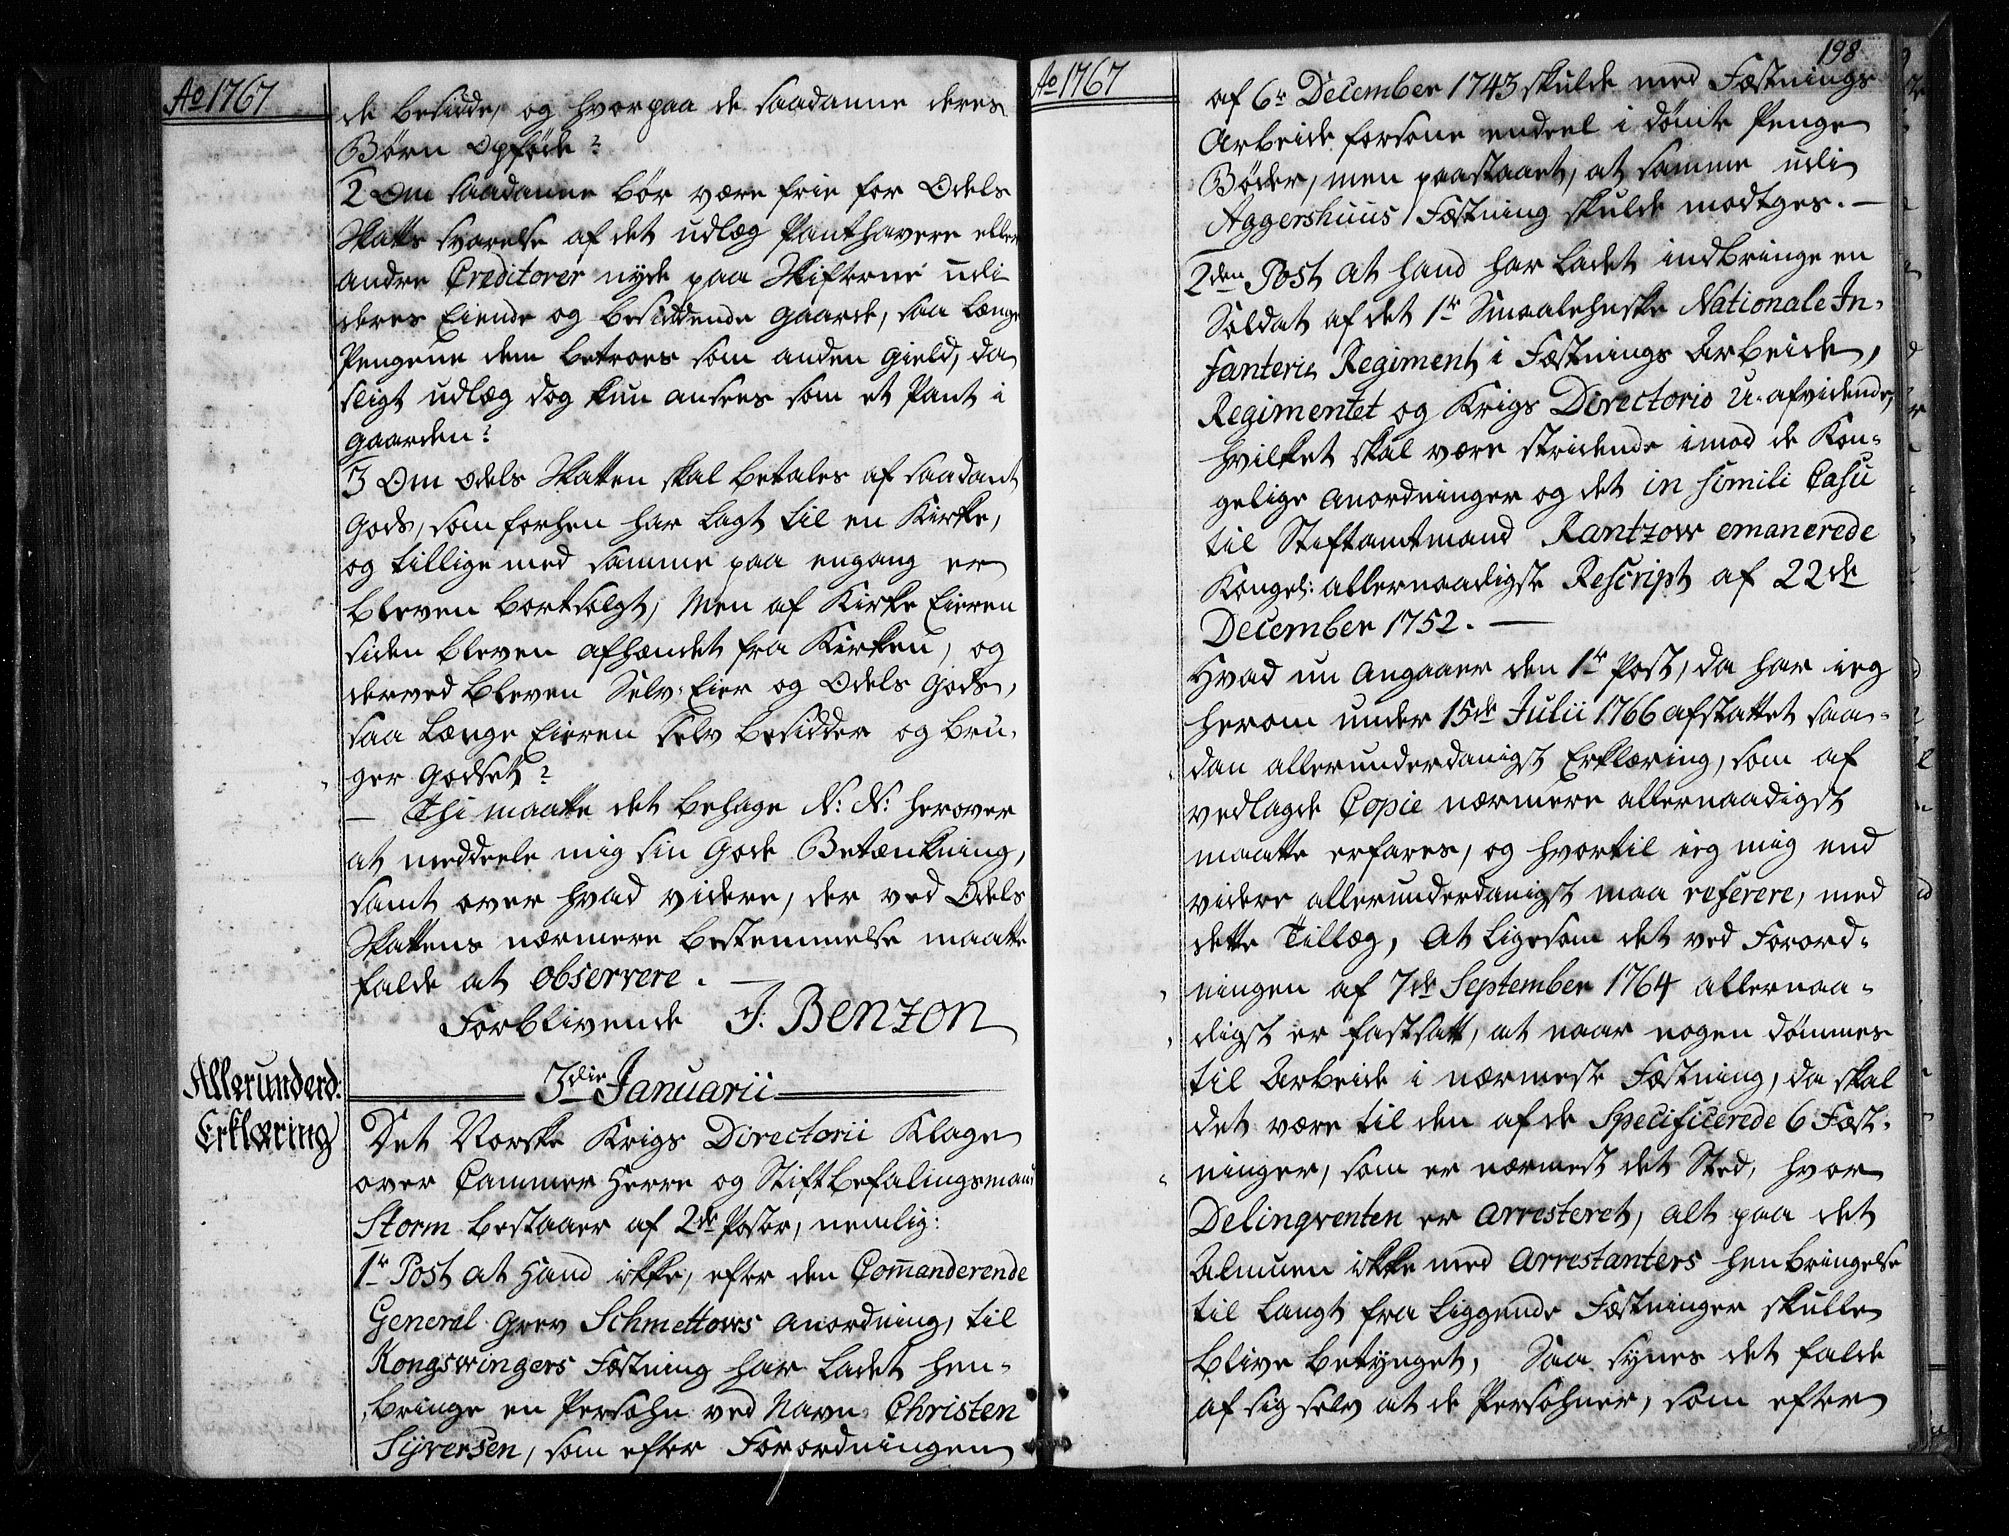 Ao 1767
de besidde, og hvorpaa de saadanne deres
Børn Opføde?
2 Om saadanne bør være frie for Odels
Skatts svarelse af det udlæg Panthavere eller
andre Creditorer nyde paa Skifterne udi
deres Eiende og besiddende gaarde, saa længe
Pengene dem betroes som anden gield, da
sligt udlæg dog kun ansees som et Pant i
gaarden?
3 Om Odels Skatten skal betales af saadant
Gods, som forhen har lagt til en Kirke,
og tillige med samme paa engang er
bleven bortsolgt, Men af Kirke Eieren
siden bleven afhændet fra Kirken, og
derved bleven Selv-Eier og Odels Gods,
saa længe Eieren selv besidder og bru-
ger Godset?
— Thi maatte det behage N: N: herover
at meddeele mig sin Gode Betænkning,
samt over hvad videre, der ved Odels
Skattens nærmere bestemmelse maatte
falde at observere. —
Forblivende J. Benzon
3die Januarii
Allerunderd:
Erklæring
Det Norske Krigs Directorii Klage
over Cammer Herre og Stiftbefalingsmand
Storm bestaaer af 2de Poster, nemlig:
1te Post at Hand ikke, efter den Commanderende
General Grev Schmettows Anordning, til
Kongswingers Fæstning har ladet hen-
bringe en Persohn ved Navn Christen
Syversen, som efter Forordningen
Ao 1767
198
af 6te December 1743 skulde med Fæstnings
Arbeide forsone endeel i dømte Penge
Bøder, men paastaaet, at samme udi
Aggershuus Fæstning skulde modtges. —
2den Post at hand har ladet indbringe en
Soldat af det 1te Smaalehnske Nationale In-
fanterie Regiment i Fæstnings Arbeide,
Regimentet og Krigs Directorio u-afvidende,
hvilket skal være stridende imod de Kon-
gelige Anordninger og det in simili Casu
til Stiftamtmand Rantzow emanerede
Kongel: allernaadigste Rescript af 22de
December 1752. —
Hvad nu Angaaer den 1te Post, da har ieg
herom under 15de Julii 1766 afstattet saa-
dan allerunderdanigst Erklæring, som af
vedlagde Copie nærmere allernaadigst
maatte erfares, og hvortil ieg mig end
videre allerunderdanigst maa referere, med
dette Tillæg, At ligesom det ved Forord-
ningen af 7de September 1764 allernaa-
digst er fastsatt, at naar nogen dømmes
til Arbeide i nærmeste Fæstning, da skal
det være til den af de Specificerede 6 Fæst-
ninger, som er nærmest det Sted, hvor
Delinqventen er Arresteret, alt paa det
Almuen ikke med Arrestanters henbringelse
til langt fra liggende Fæstninger skulle
blive betynget, Saa synes det falde
af sig selv at de Persohner, som efter